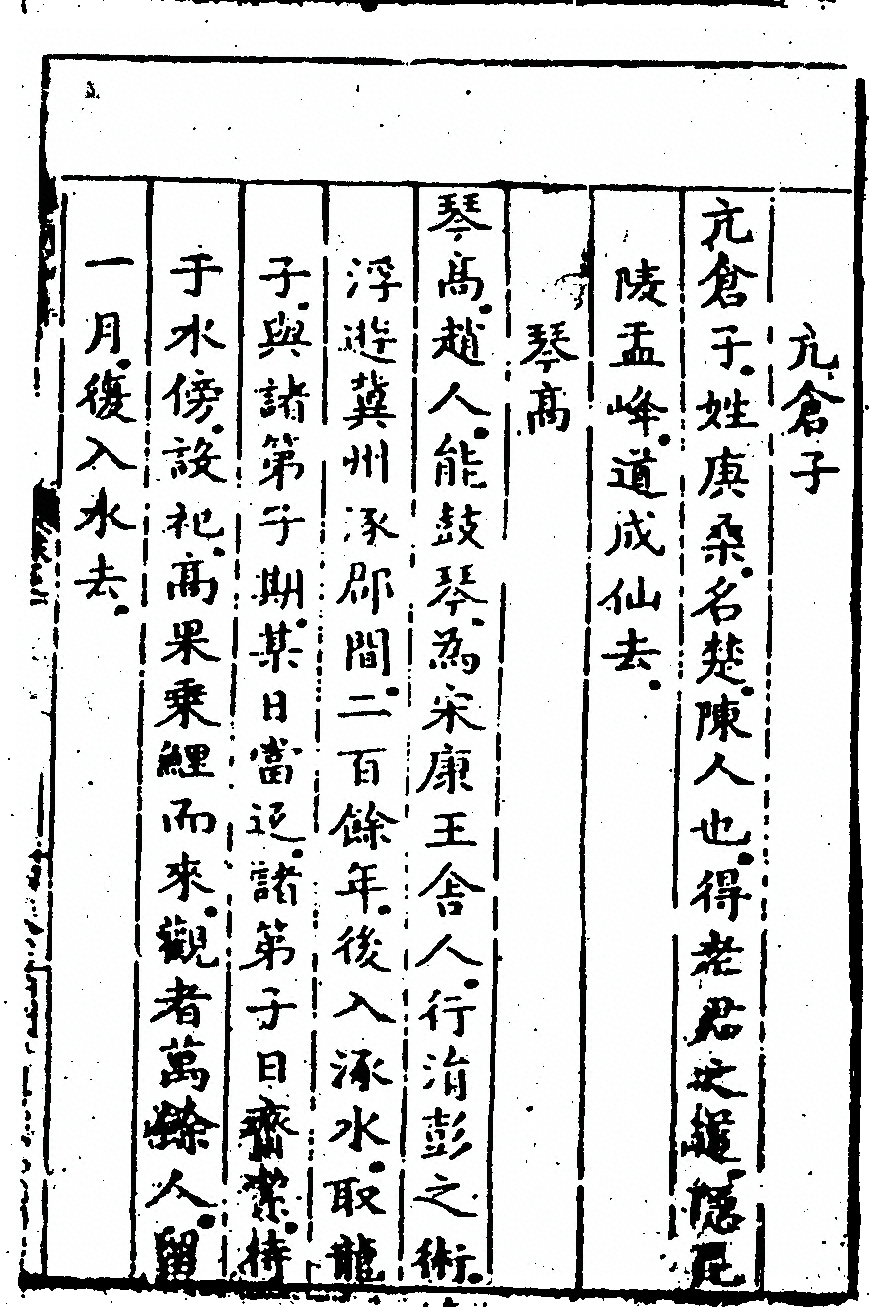 亢倉子
亢倉子。姓庚桑。名楚。陳人也。得老君之道。隱毘
陵孟峰。道成仙去。
琴高
琴高。趙人。能鼓琴。為宋康王舍人。行涓彭之術。
浮遊冀州涿郡間。二百餘年。後入涿水。取龍
子。與諸第子期。某日當返。諸第子日齋潔。待
于水傍。設祀。高果乘鯉而來。觀者萬餘人。留
一月。復入水去。